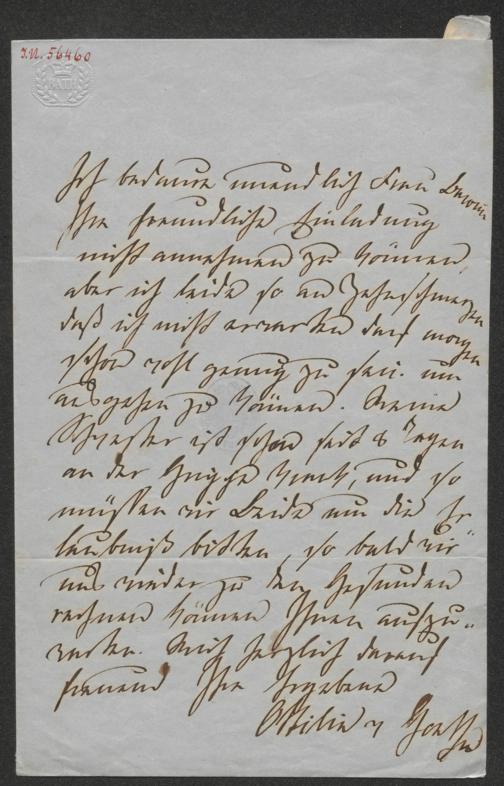 I.N. 56460
BATH
Ich bedaure unendlich Frau Baronin
Ihre freundliche Einladung
nicht annehmen zu können,
aber ich leide so an Zahnschmerzen
daß ich nicht erwarten darf morgen
schon wohl genug zu sein um
ausgehen zu können. Meine
Schwester ist schon seit 8 Tagen
an der Grippe krank, und so
müssen wir Beide um die Er
laubniß bitten, so bald wir
uns wieder zu den Gesunden
rechnen können Ihnen aufzu„
warten. Mich herzlich darauf
freuend Ihre Ergebene
Ottilie v Goethe